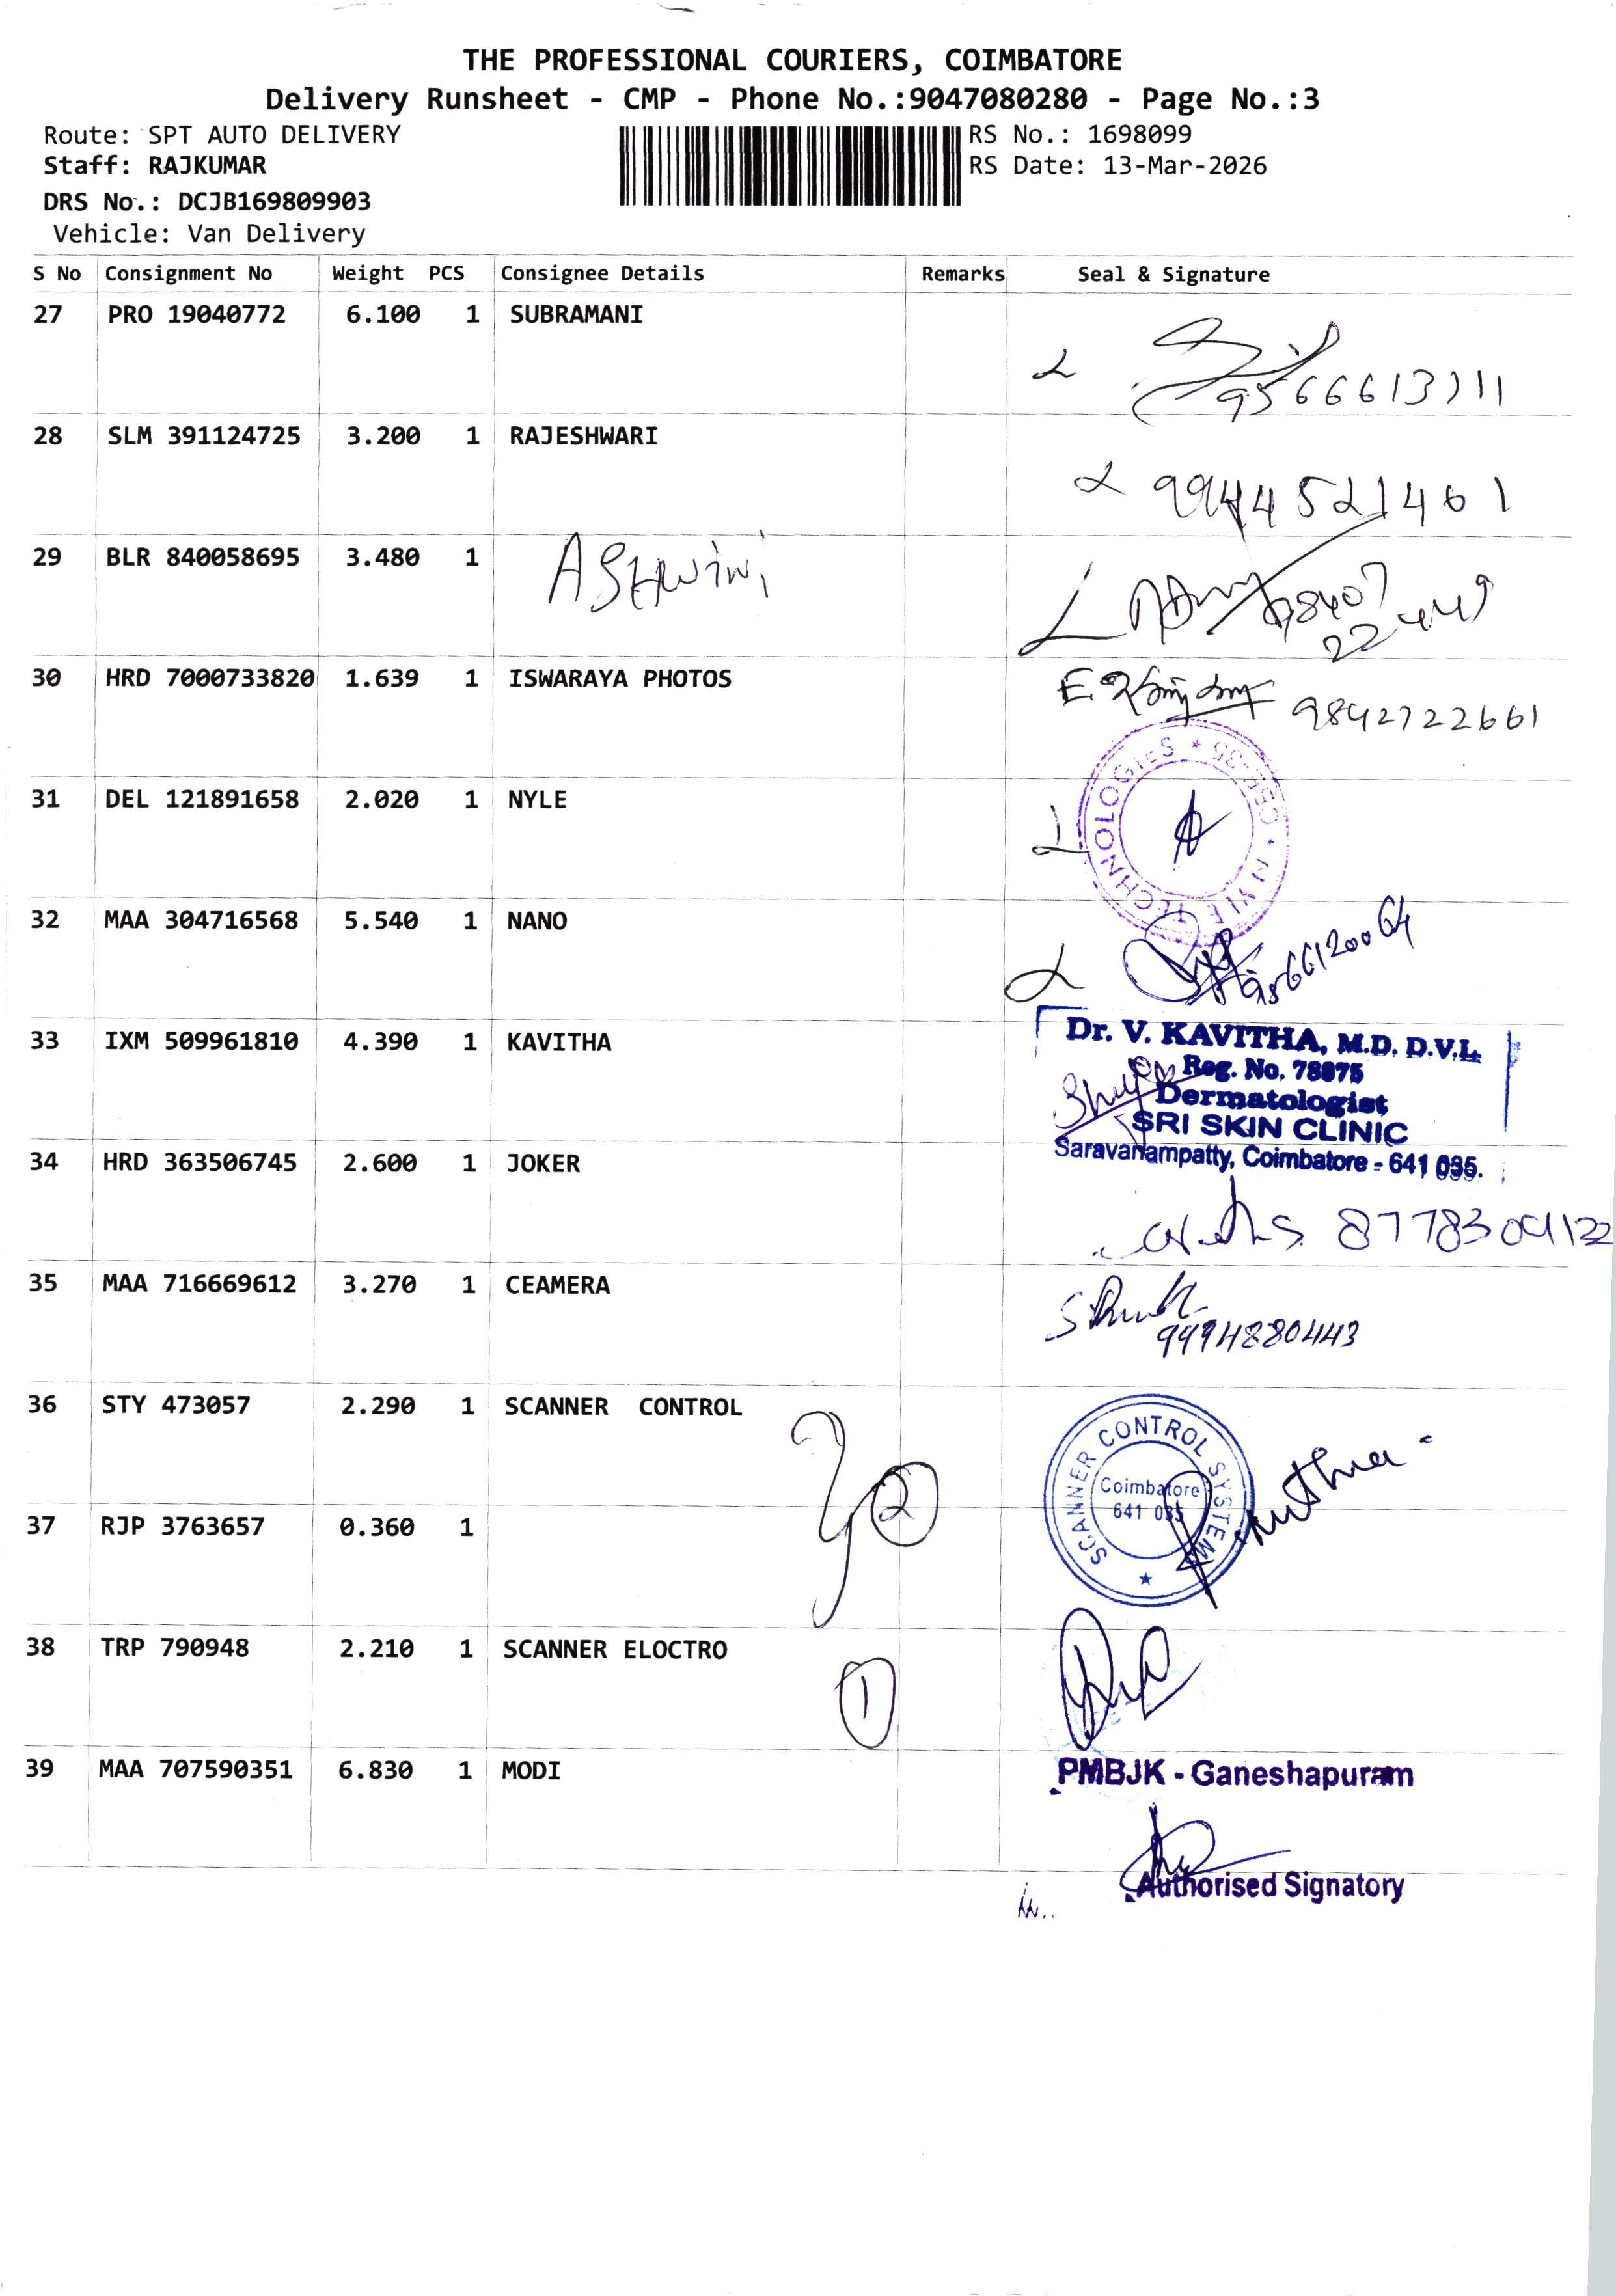 THE PROFESSIONAL COURIERS, COIMBATORE
Delivery Runsheet - CMP - Phone No.:9047080280 - Page No.:3
Route: SPT AUTO DELIVERY
Staff: RAJKUMAR
DRS No.: DCJB169809903
Vehicle: Van Delivery
RS No.: 1698099
RS Date: 13-Mar-2026
S No Consignment No Weight PCS Consignee Details Remarks Seal & Signature
27 PRO 19040772 6.100 1 SUBRAMANI
28 SLM 391124725 3.200 1 RAJESHWARI
9944521461
29 BLR 840058695 3.480 1 ASHwini
98407
22449
30 HRD 7000733820 1.639 1 ISWARAYA PHOTOS
9842722661
31 DEL 121891658 2.020 1 NYLE
NYLE TECHNOLOGIES
32 MAA 304716568 5.540 1 NANO
9566120064
33 IXM 509961810 4.390 1 KAVITHA
Dr. V. KAVITHA, M.D. D.V.L.
Reg. No. 78875
Dermatologist
SRI SKIN CLINIC
Saravanampatty, Coimbatore - 641 035.
34 HRD 363506745 2.600 1 JOKER
35 MAA 716669612 3.270 1 CEAMERA
36 STY 473057 2.290 1 SCANNER CONTROL
2
SCANNER CONTROL SYSTEM
Coimbatore
641 035
37 RJP 3763657 0.360 1
38 TRP 790948 2.210 1 SCANNER ELOCTRO
1
39 MAA 707590351 6.830 1 MODI
PMBJK - Ganeshapuram
Authorised Signatory